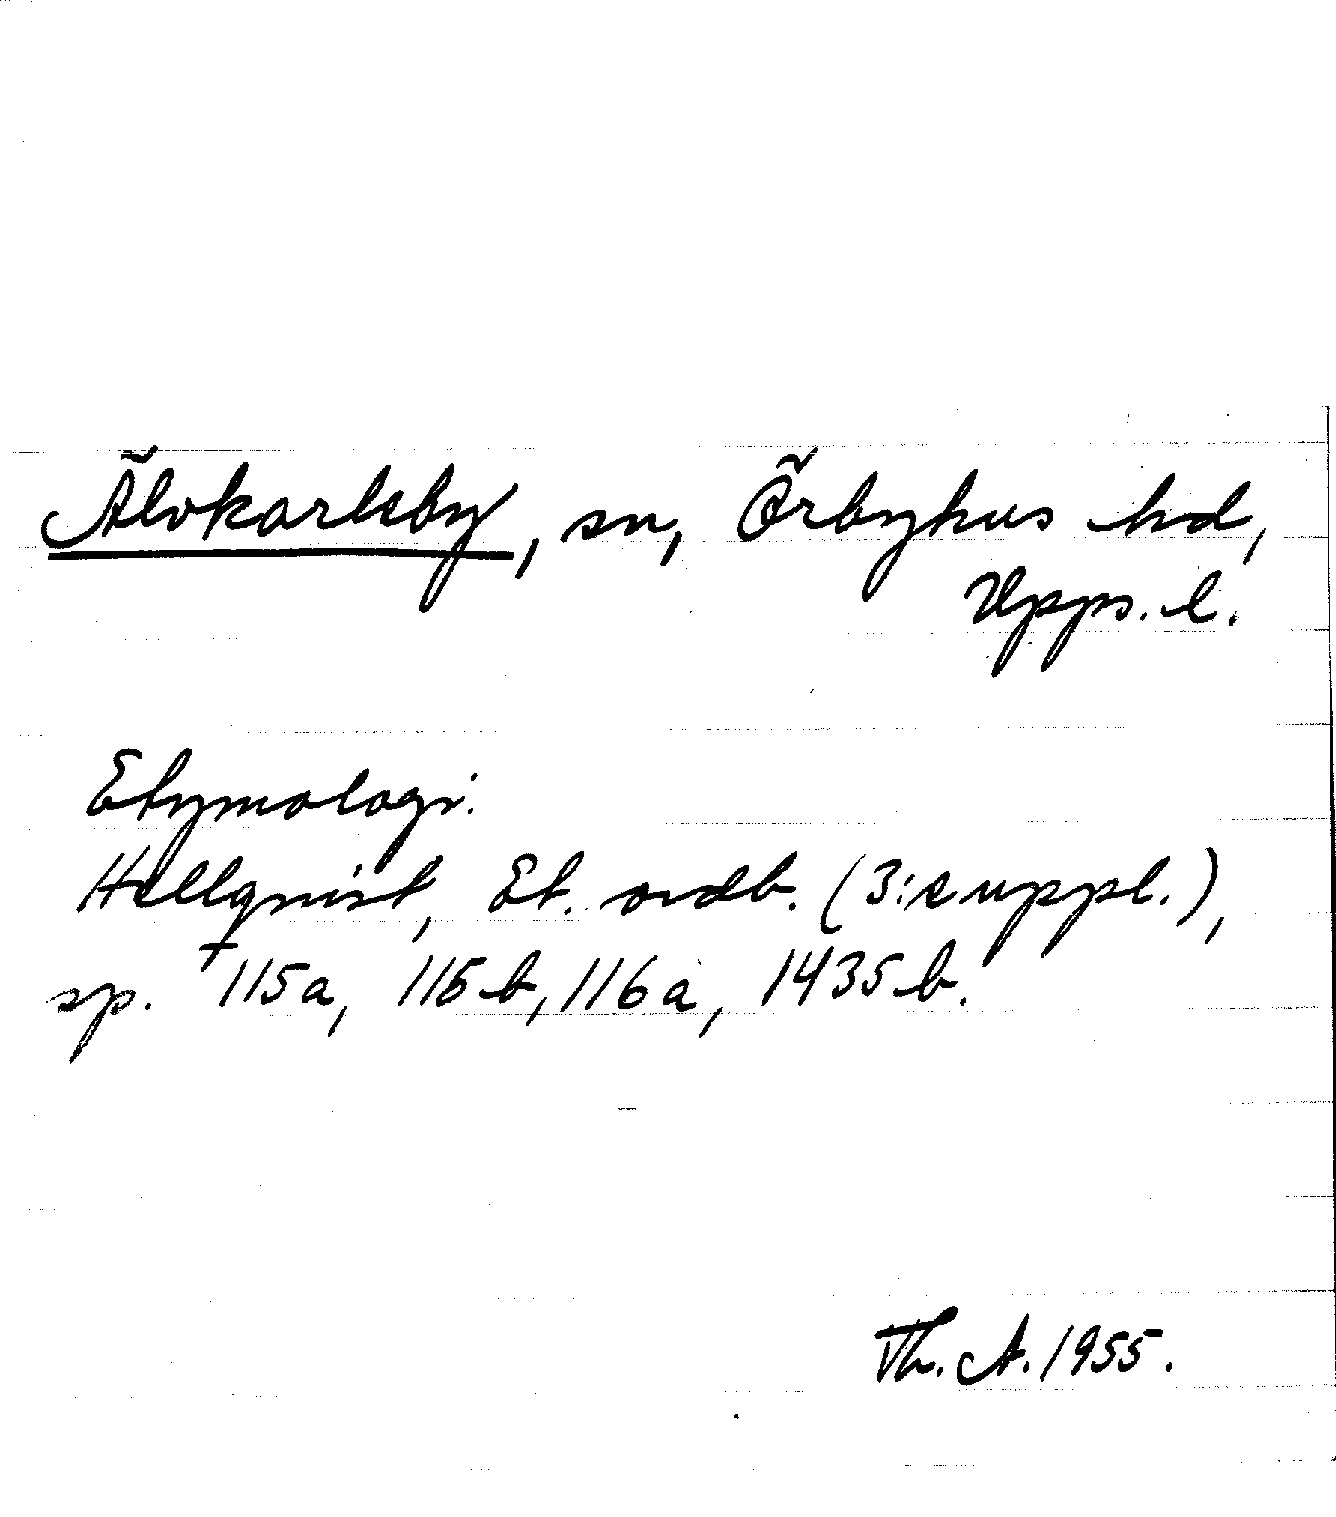 Älvkarleby, sn, Örbyhus hd,
Upps. l.
Etymologi.
Hellqvist, Et. ordb. (3:e uppl.),
sp. 115a, 115b, 116a, 1435b.
Th. A. 1955.